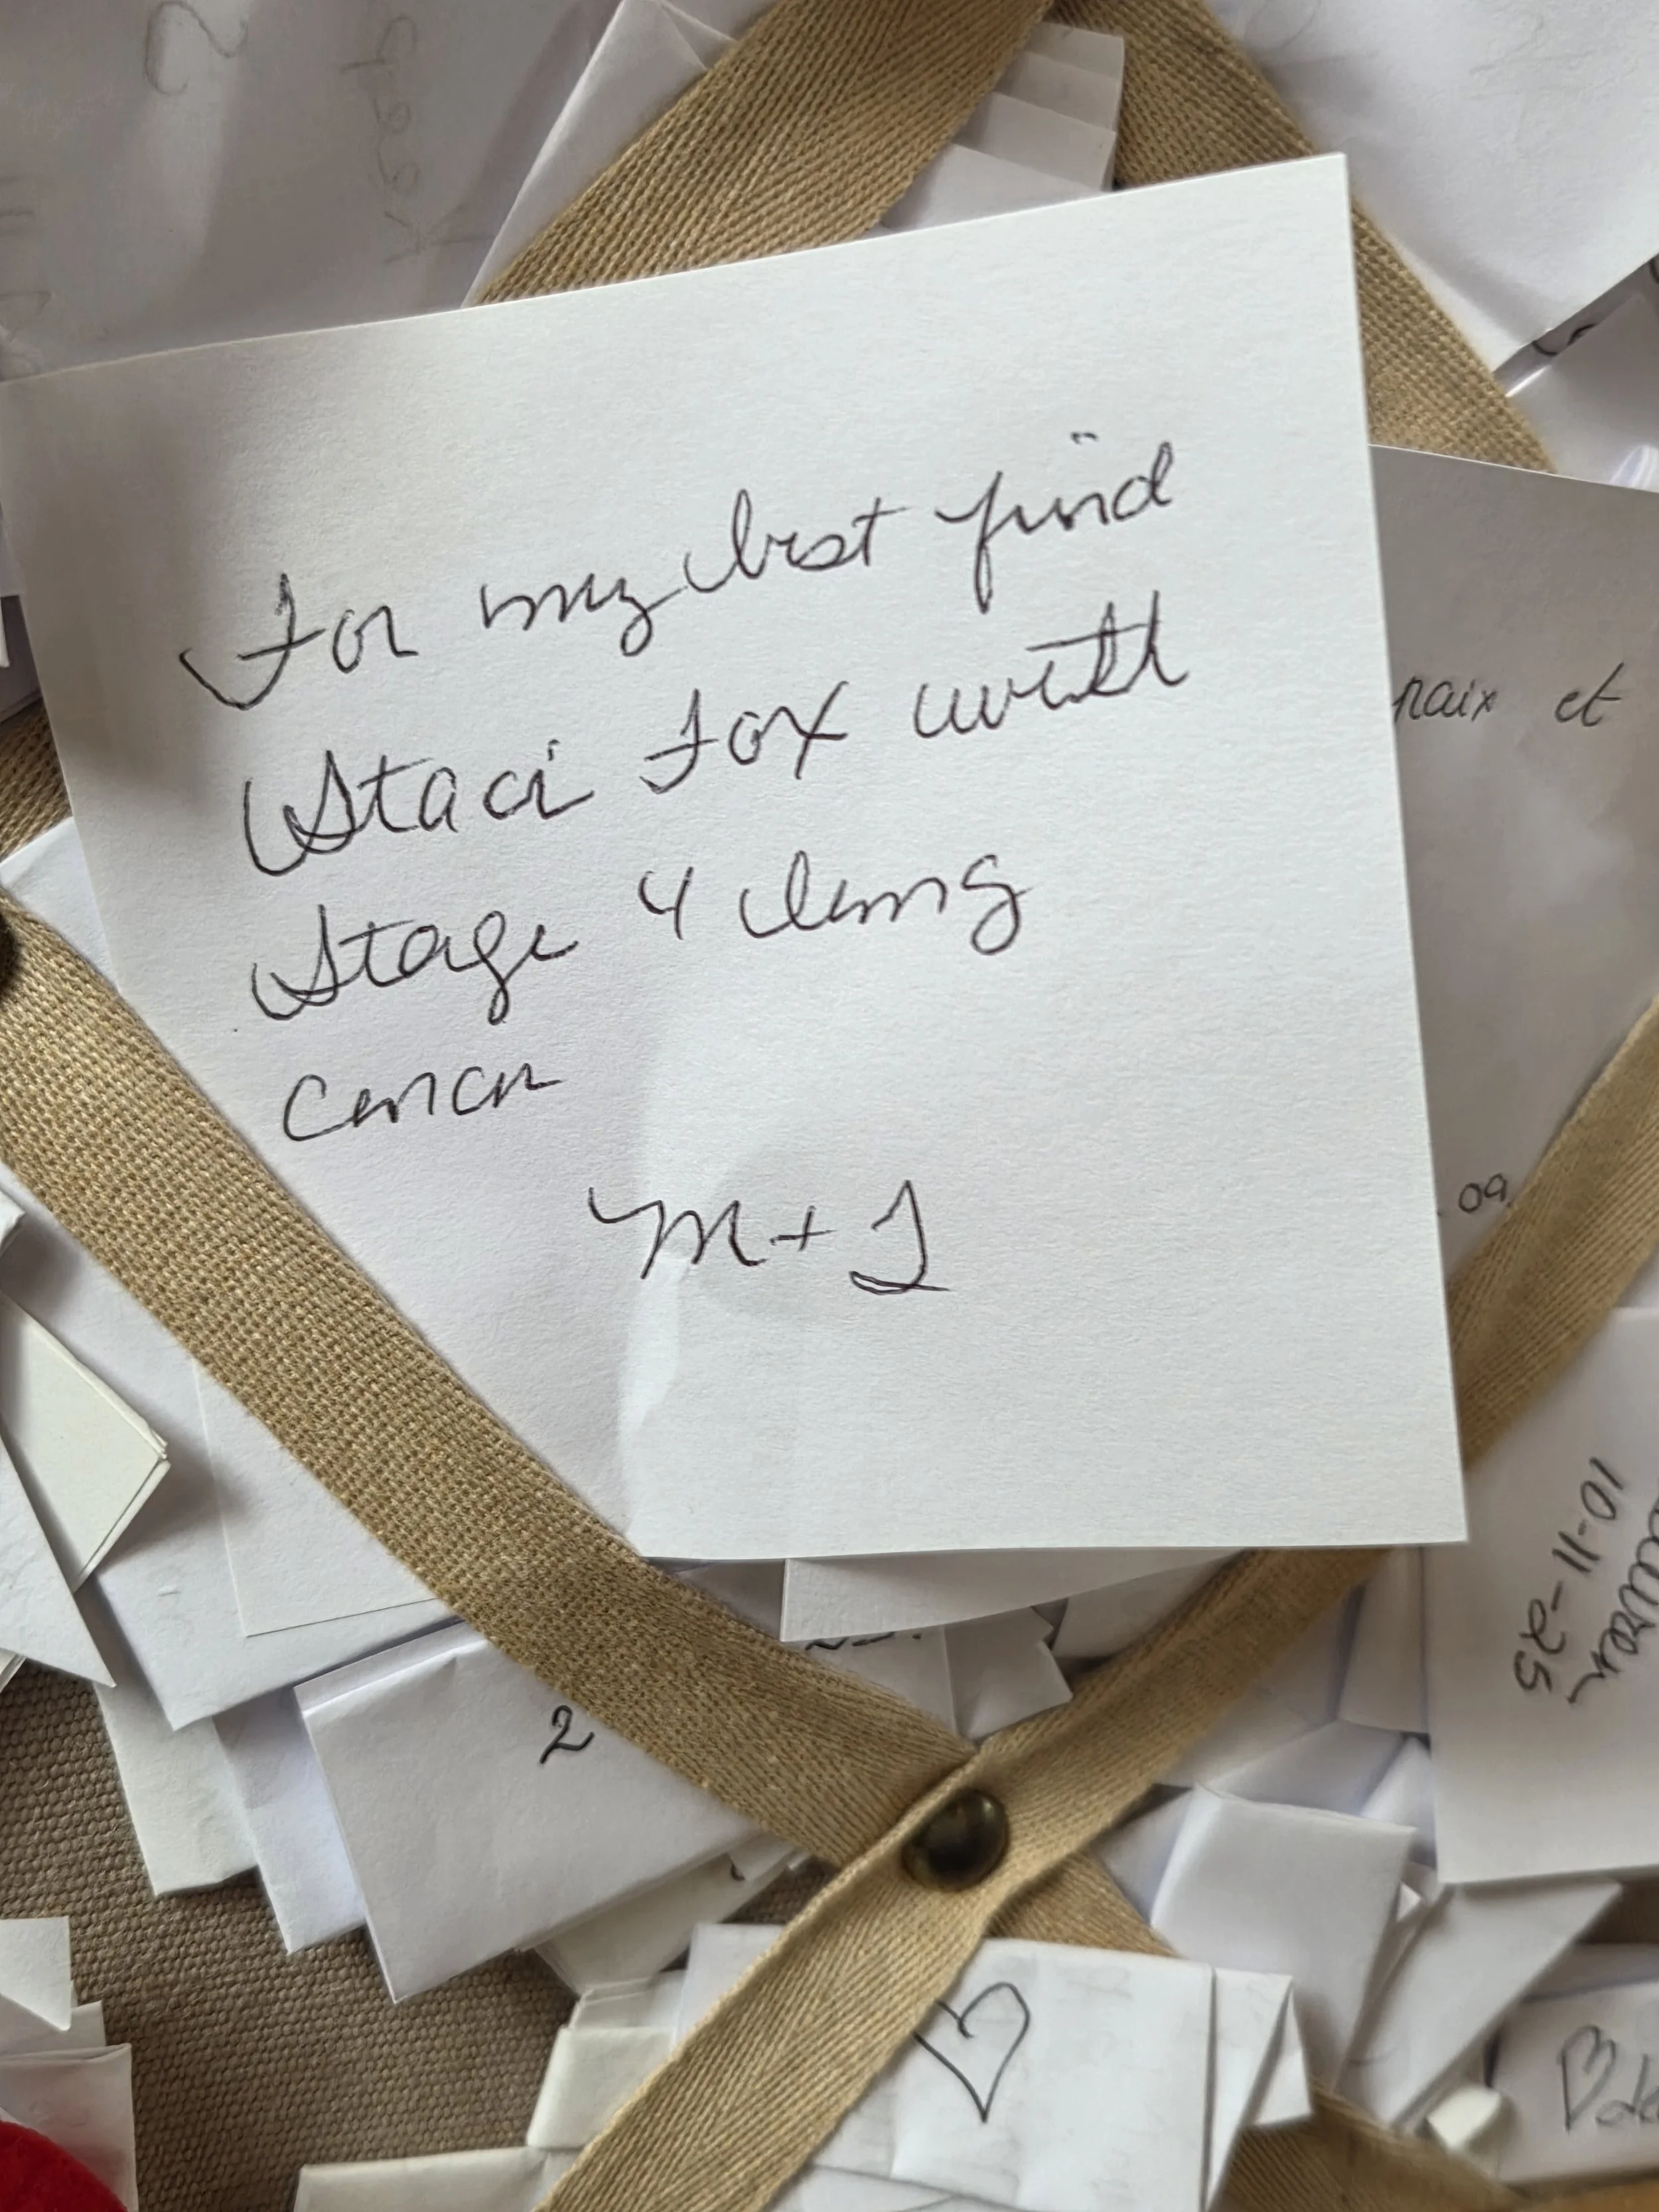 For my best frind
Staci Fox with
Stage 4 lung
Cancer
M + J
paix et
09.
10-11-25
2